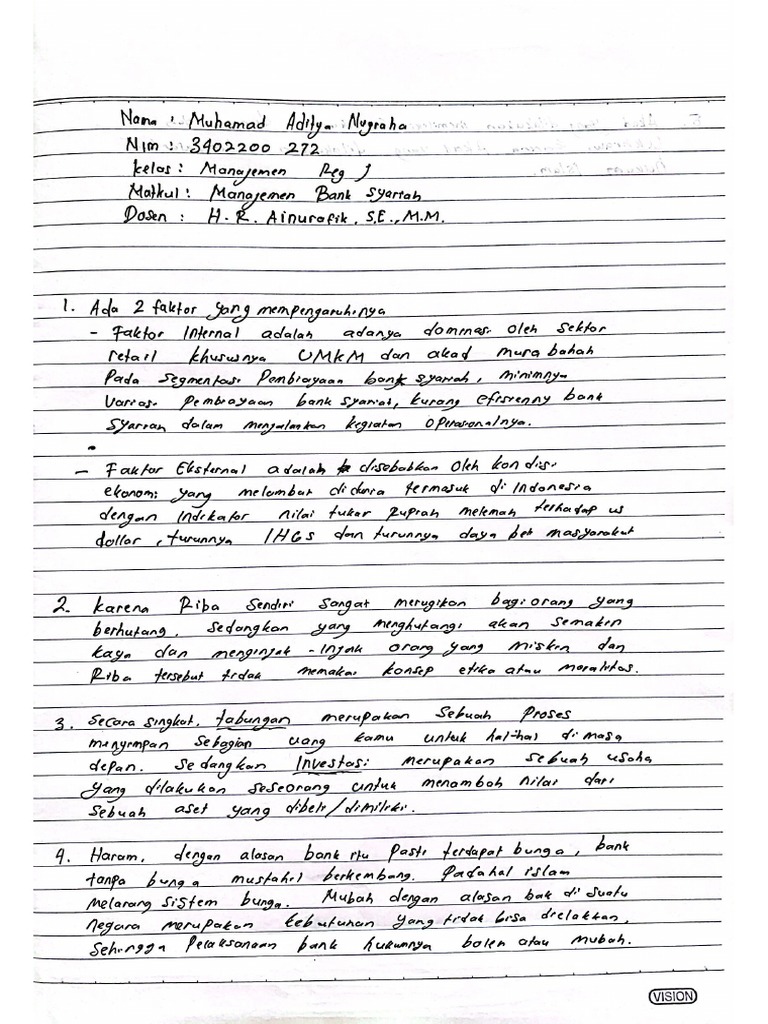 Nama : Muhamad Aditya Nugraha
Nim : 3402200 272
Kelas : Manajemen Reg J
Matkul : Manajemen Bank Syariah
Dosen : H. R. Ainurafik, S.E., M.M.
1. Ada 2 faktor yang mempengaruhinya
- Faktor Internal adalah adanya dominasi oleh sektor
retail khususnya UMKM dan akad murabahah
Pada segmentasi Pembiayaan bank syariah, minimnya
Variasi Pembiayaan bank syariah, kurang efisienny bank
Syariah dalam menjalankan kegiatan operasionalnya.
- Faktor Eksternal adalah disebabkan oleh kondisi
ekonomi yang melambat didunia termasuk di Indonesia
dengan Indikator nilai tukar rupiah melemah terhadap us
dollar, turunnya IHGS dan turunnya daya beli masyarakat
2. Karena Riba sendiri sangat merugikan bagi orang yang
berhutang, sedangkan yang menghutangi akan semakin
kaya dan menginjak-injak orang yang miskin dan
Riba tersebut tidak memakai konsep etika atau moralitas.
3. Secara singkat, tabungan merupakan sebuah proses
menyimpan sebagian uang kamu untuk hal-hal di masa
depan. sedangkan Investasi merupakan sebuah usaha
yang dilakukan seseorang untuk menambah nilai dari
sebuah aset yang dibeli/dimiliki.
4. Haram, dengan alasan bank itu pasti terdapat bunga, bank
tanpa bunga mustahil berkembang. Padahal islam
melarang sistem bunga. Mubah dengan alasan bak di suatu
negara merupakan kebutuhan yang tidak bisa dielakkan,
Sehingga Pelaksanaan bank hukumnya boleh atau mubah.
VISION